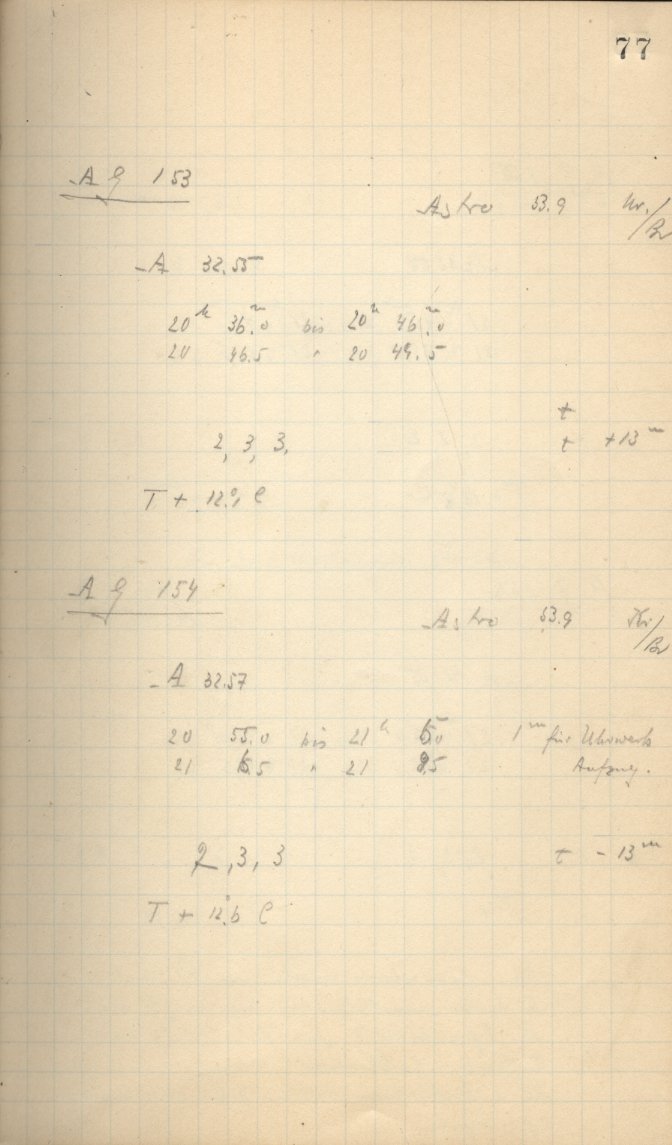 77
AG 153
Astro 53.9 Kr./Br
A 32.55
20h 36m.0 bis 20h 46m.0
20 46.5 " 20 49.5
t
2, 3, 3, t +13m
T + 12°,1 C
AG 154
Astro 53.9 /Br
A 32.57
20 55.0 bis 21h 5.0 1m für Uhrwerk
21 5.5 " 21 8.5 Aufzug.
2, 3, 3 t - 13m
T + 12°,6 C